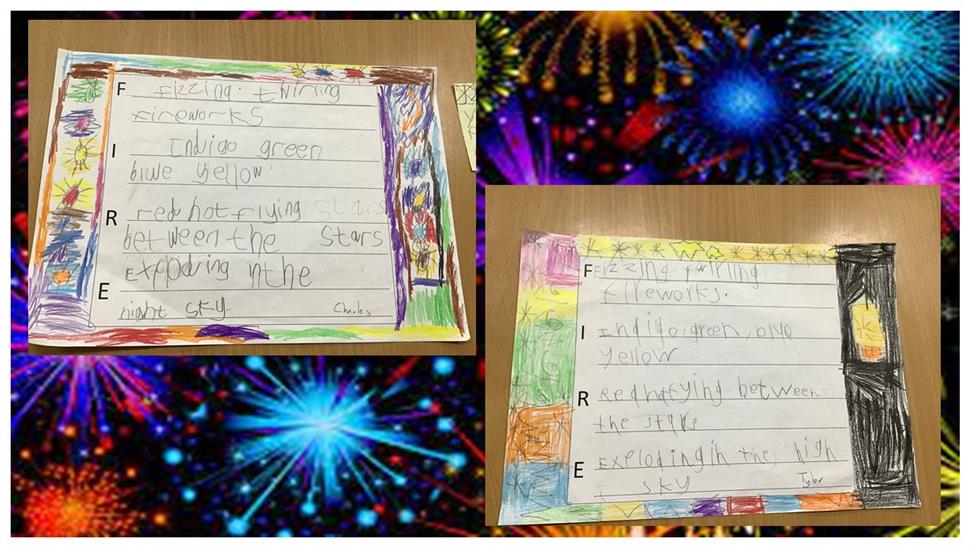 F fizzing. twiring
fireworks
I Indigo green
blue yellow.
R red hot flying stars
between the stars
in the
E night sky Charles
F Fizzing twirling
fireworks.
I Indigo, green, blue
yellow
R Red hot fying between
the stars
E Exploding in the
sky Tyler